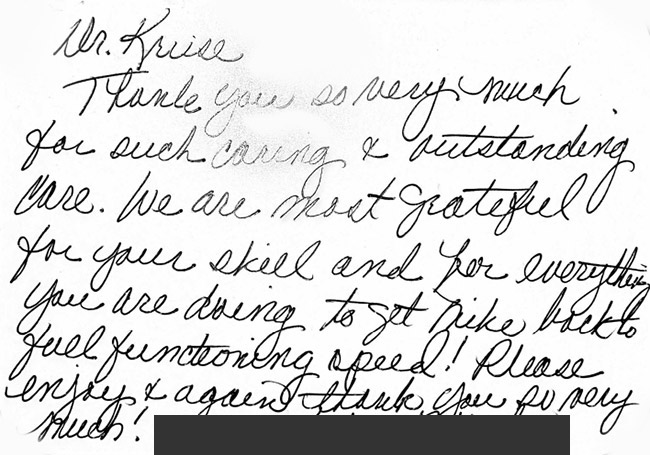 Dr. Kruse
Thank you so very much
for such caring & outstanding
care. We are most grateful
for your skill and for everything
you are doing to get Mike back to
full functioning speed! Please
enjoy & again thank you so very
much!